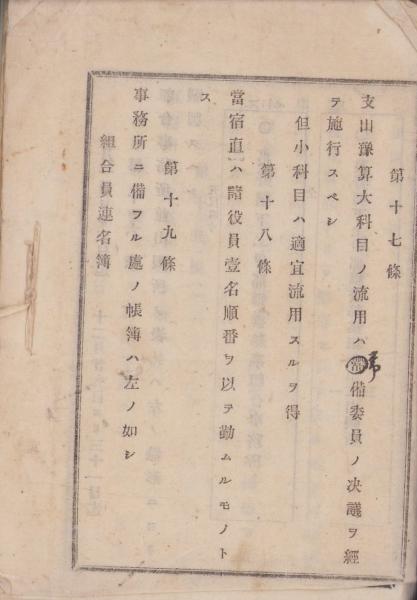 第十七條
支出豫算大科目ノ流用ハ常備委員ノ决議ヲ經
テ施行スベシ
但小科目ハ適宜流用スルヲ得
第十八條
當宿直ハ諸役員壹名順番ヲ以テ勤ムルモノト
ス
第十九條
事務所ニ備フル處ノ帳簿ハ左ノ如シ
組合員連名簿